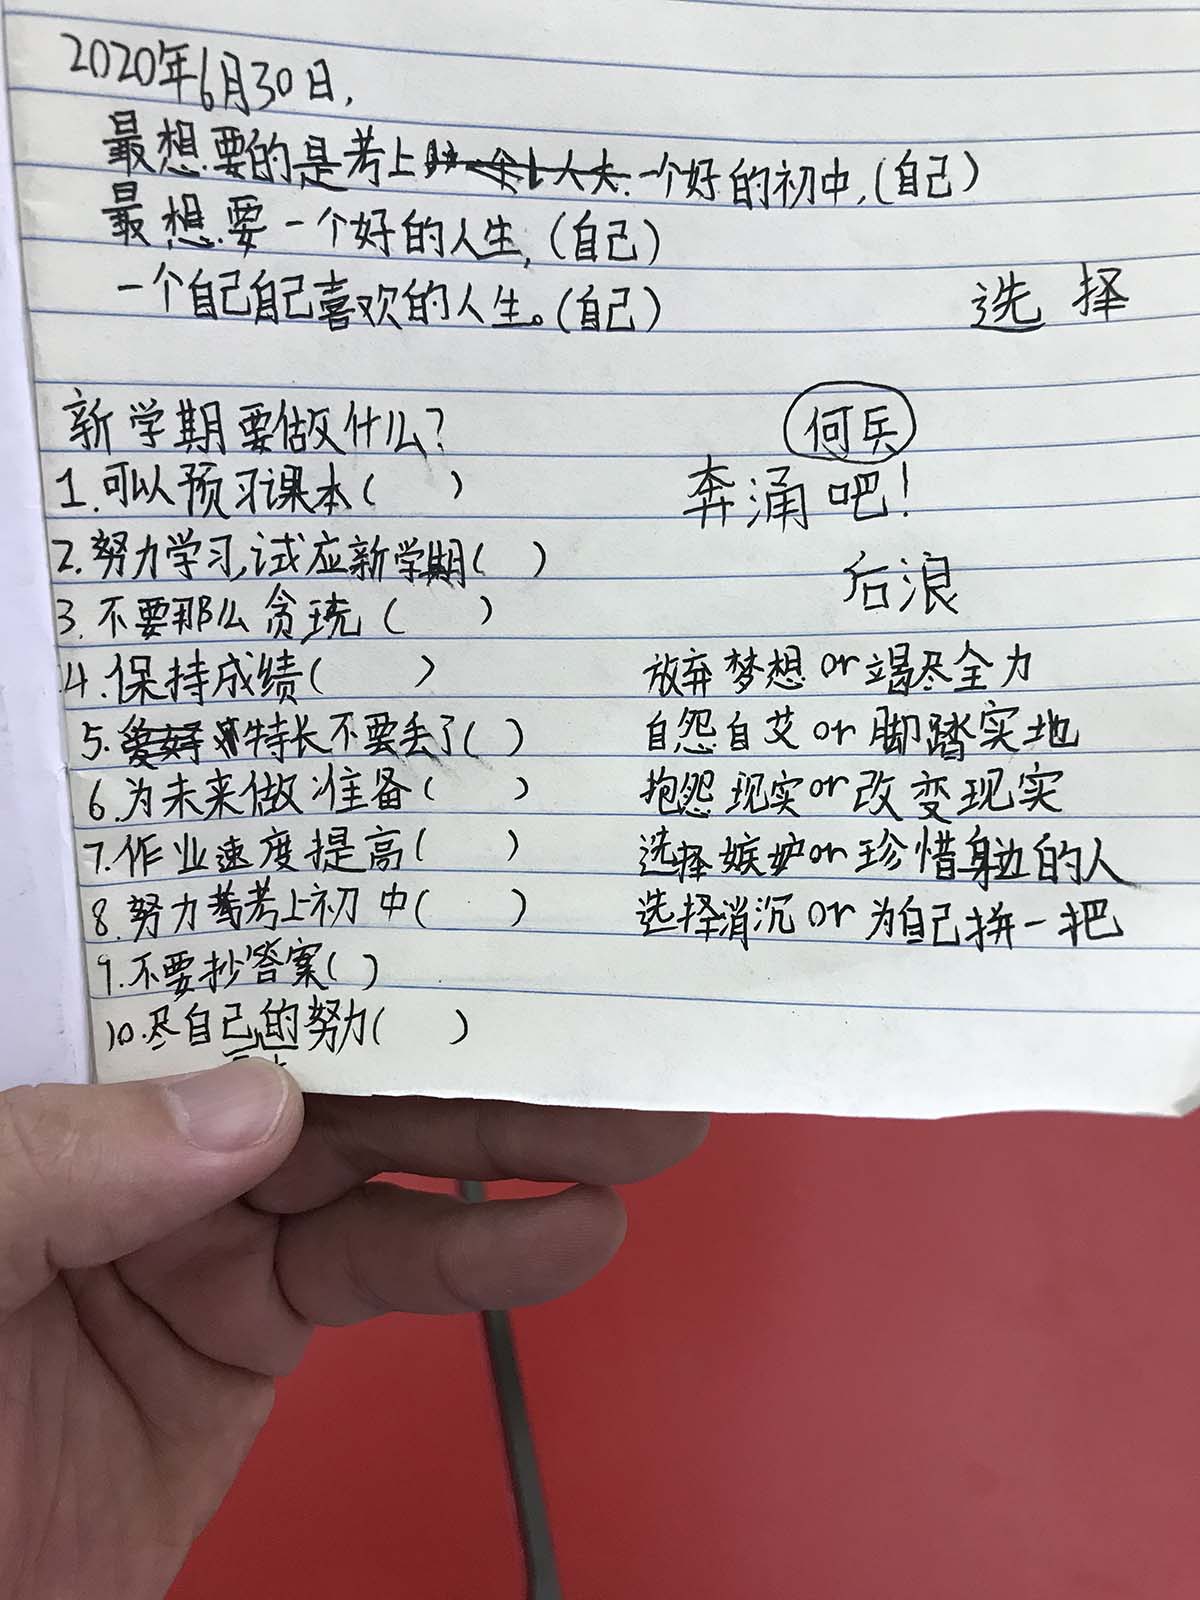 2020年6月30日,
最想要的是考上一个好的初中,(自己)
最想要一个好的人生,(自己)
一个自己自己喜欢的人生。(自己)
选择
新学期要做什么?
1.可以预习课本( )
2.努力学习,试应新学期( )
3.不要那么贪玩( )
4.保持成绩( )
5.特长不要丢了( )
6.为未来做准备( )
7.作业速度提高( )
8.努力考上初中( )
9.不要抄答案( )
10.尽自己的努力( )
何兵
奔涌吧!
后浪
放弃梦想or竭尽全力
自怨自艾or脚踏实地
抱怨现实or改变现实
选择嫉妒or珍惜身边的人
选择消沉or为自己拼一把